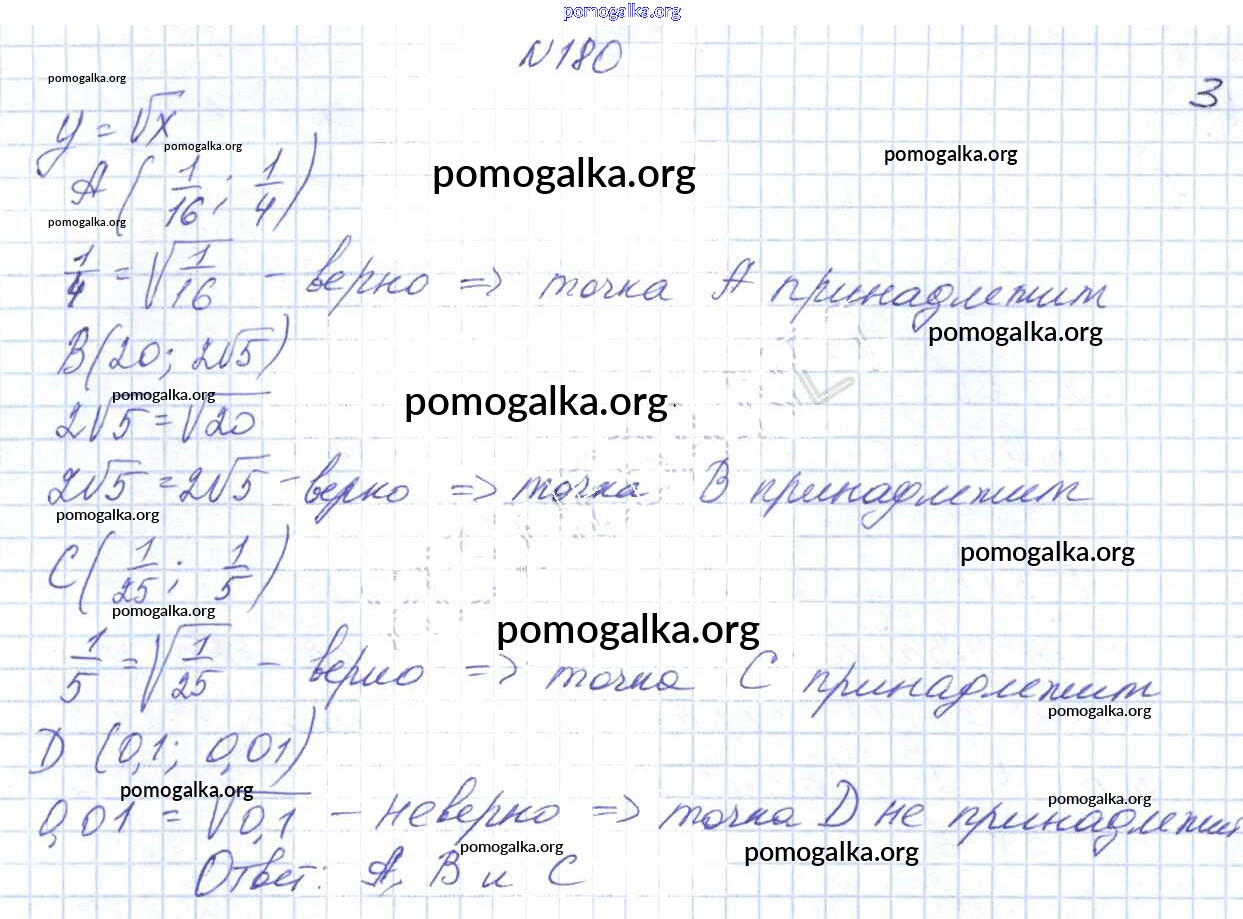 pomogalka.org
N180
pomogalka.org
3
y = √x
pomogalka.org
pomogalka.org
pomogalka.org
A (1/16; 1/4)
pomogalka.org
1/4 = √1/16 - верно => точка A принадлежит
pomogalka.org
B(20; 2√5)
pomogalka.org
pomogalka.org
2√5 = √20
2√5 = 2√5 - верно => точка B принадлежит
pomogalka.org
pomogalka.org
C(1/25; 1/5)
pomogalka.org
pomogalka.org
1/5 = √1/25 - верно => точка C принадлежит
pomogalka.org
D (0,1; 0,01)
pomogalka.org
pomogalka.org
0,01 = √0,1 - неверно => точка D не принадлежит
pomogalka.org
pomogalka.org
Ответ: A, B и C